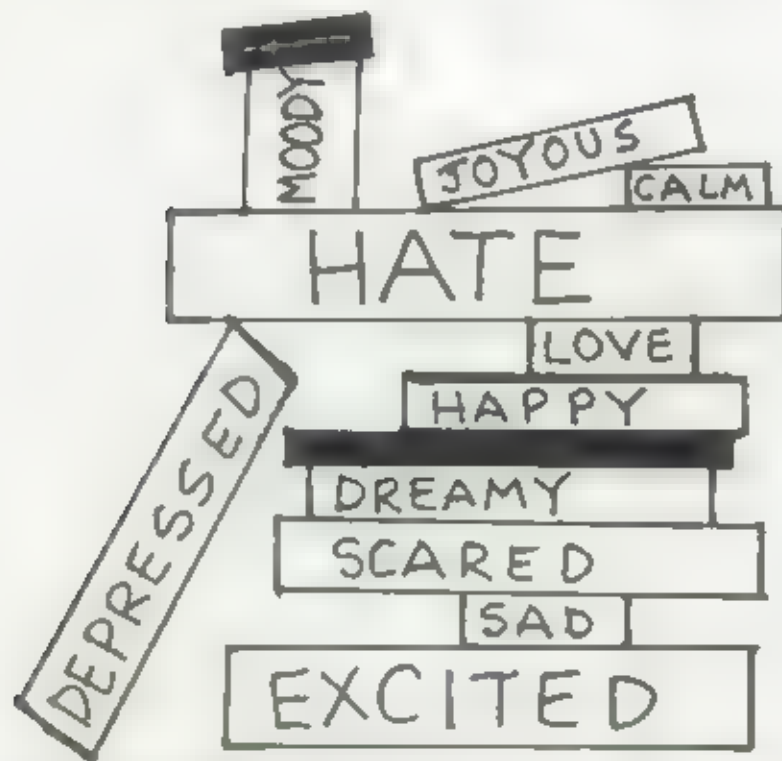 MOODY
JOYOUS
CALM
HATE
LOVE
HAPPY
DEPRESSED
DREAMY
SCARED
SAD
EXCITED